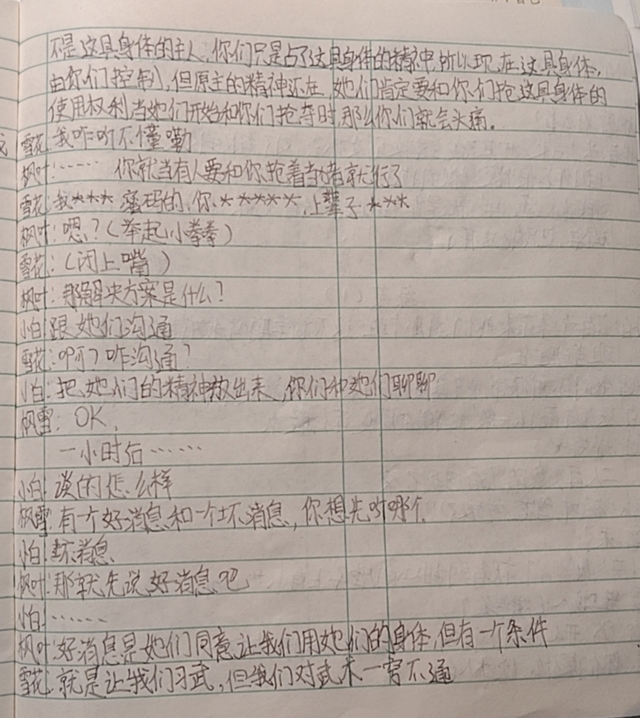 不是这具身体的主人，你们只是占了这具身体的精神，所以现在这具身体，
由你们控制，但原主的精神还在，她们肯定要和你们抢这具身体的
使用权利，当她们开始和你们抢夺时，那么你们就会头痛。
雪花：我咋听不懂嘞
枫叶：…… 你就当有人要和你抢着当
雪花：我*** 的，你*****，上辈子***
枫叶：嗯？（举起小拳拳）
雪花：（闭上嘴）
枫叶：那解决方案是什么？
小白：跟她们沟通
雪花：啊？咋沟通？
小白：把她们的精神放出来，你们和她们聊聊
枫雪：OK，
一小时后……
小白：谈的怎么样
枫雪：有一个好消息和一个坏消息，你想先听哪个
小白：坏消息
枫叶：那就先说好消息吧
小白：……
枫叶：好消息是她们同意让我们用她们的身体，但有一个条件
雪花：就是让我们习武，但我们对武术一窍不通